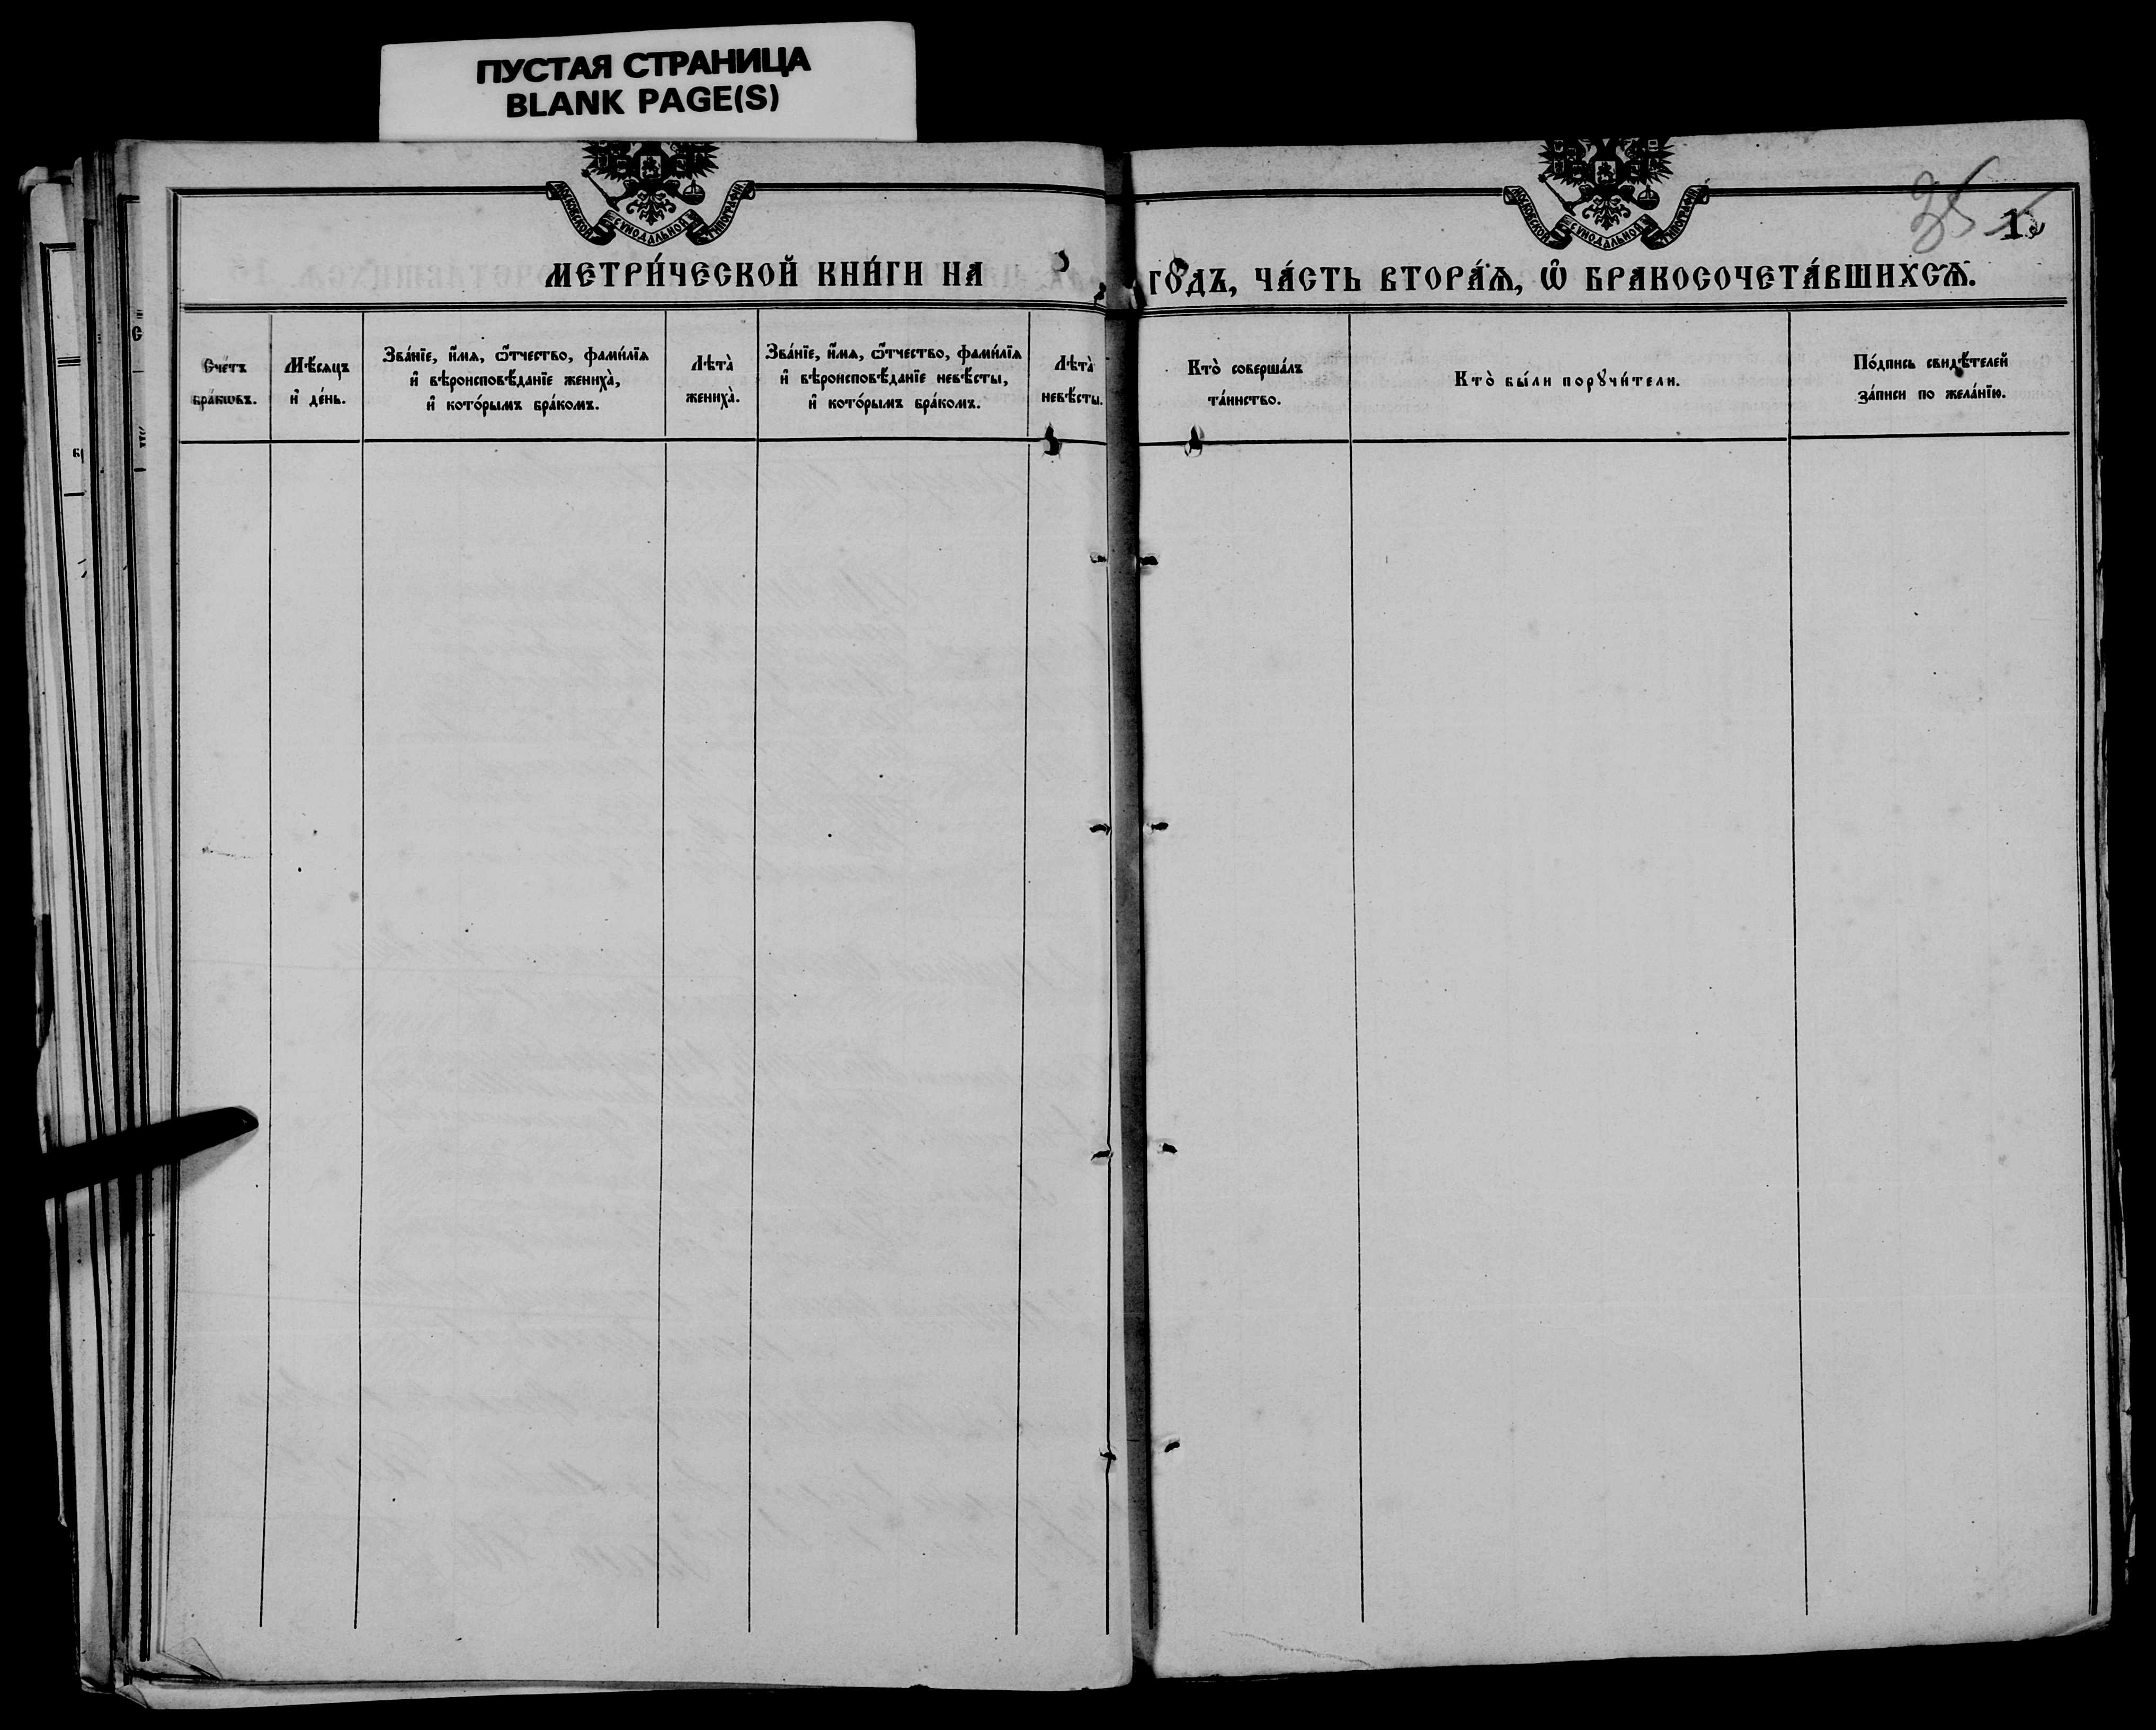 ПУСТАЯ СТРАНИЦА
BLANK PAGE(S)
МОСКОВСКОЙ СѴНОДАЛЬНОЙ ТИПОГРАФІИ
МОСКОВСКОЙ СѴНОДАЛЬНОЙ ТИПОГРАФІИ
35
МЕТРИ́ЧЕСКОЙ КНИ́ГИ НА
ГО́ДЪ, ЧА́СТЬ ВТОРА́Ѧ, Ѽ БРАКОСОЧЕТА́ВШИХСѦ.
Сче́тъ
бра́кѡвъ.
Мѣ́сѧцъ
и҆ де́нь.
Зва́нїе, и҆́мѧ, ѻ҆́тчество, фами́лїѧ
и҆ вѣроисповѣ́данїе жениха̀,
и҆ кото́рымъ бра́комъ.
Лѣта̀
жениха̀.
Зва́нїе, и҆́мѧ, ѻ҆́тчество, фами́лїѧ
и҆ вѣроисповѣ́данїе невѣ́сты,
и҆ кото́рымъ бра́комъ.
Лѣта̀
невѣ́сты.
Кто̀ соверша́лъ
та́инство.
Кто̀ бы́ли порꙋчи́тели.
По́дпись свидѣ́телей
за́писи по жела́нїю.